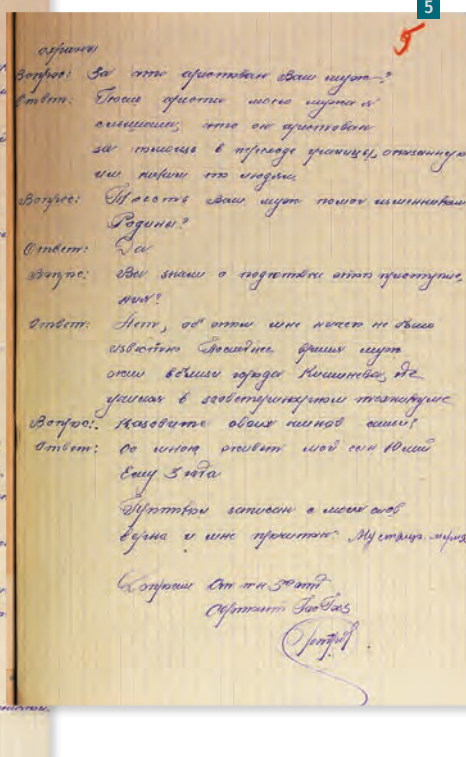 5
5
охраны
Вопрос: За что арестован Ваш муж?
Ответ: После ареста моего мужа я
слышала, что он арестован
за помощь в переходе границы, оказанную
им каким то людям.
Вопрос: То есть Ваш муж помог изменникам
Родины?
Ответ: Да
Вопрос: Вы знали о подготовке этого преступле-
ния?
Ответ: Нет, об этом мне ничего не было
известно Последнее время муж
жил вблизи города Кишинева, где
учился в зооветеринарном техникуме
Вопрос: Назовите своих членов семьи?
Ответ: Со мною живет мой сын Юлий
Ему 3 года
записан с моих слов
верна и мне прочитан. Мустяца
Допросил
Сержант